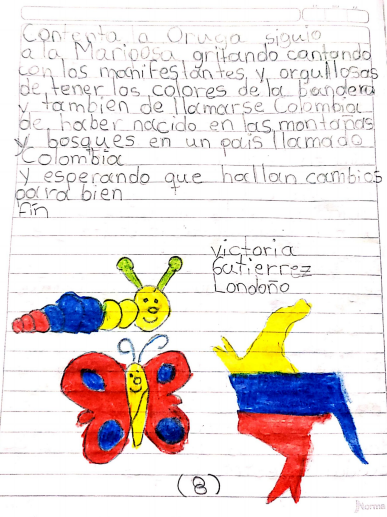 Contenta la Oruga siguio
a la Mariposa gritando cantando
con los manifestantes y orgullosas
de tener los colores de la bandera
y tambien de llamarse Colombia
de haber nacido en las montañas
y bosques en un pais llamado
Colombia
y esperando que hallan cambios
para bien
Fin
Victoria
Gutierrez
Londoño
(8)
Norma